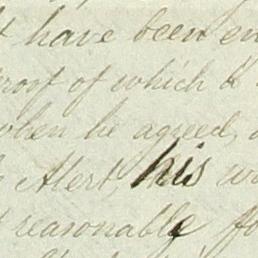 have been en
roof of which
when he agreed,
Alert, his
reasonable fo